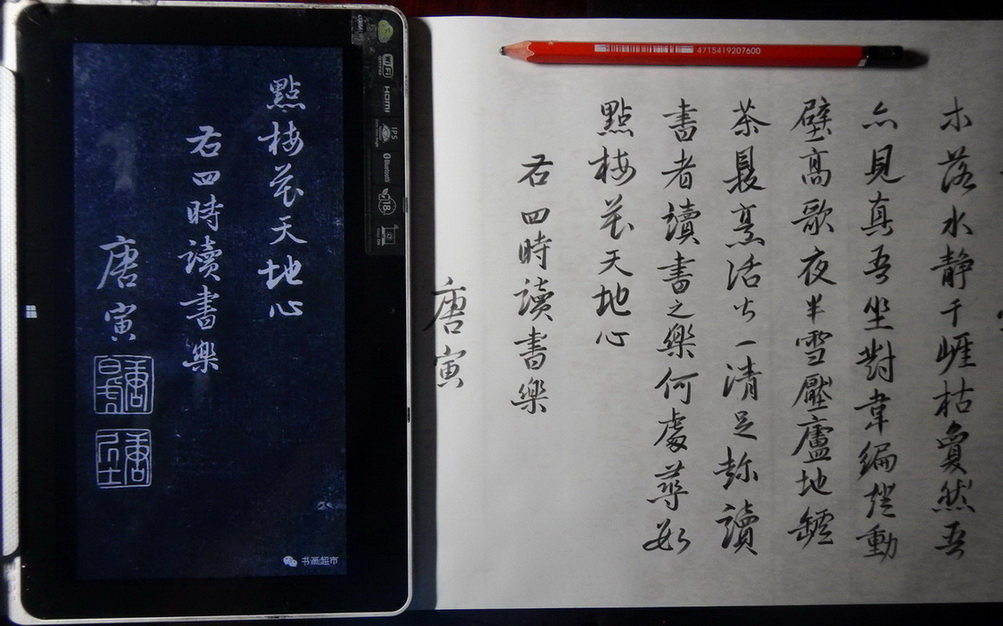 木落水静千崕枯夐然吾
亦見真吾坐對韋編燈動
壁高歌夜半雪壓廬地罏
茶鼎烹活火一清足称讀
書者讀書之樂何處尋數
點梅花天地心
右四時讀書樂
唐寅
點梅花天地心
右四時讀書樂
唐寅
书画超市
4715419207600
WiFi
HDMI
IPS
Bluetooth